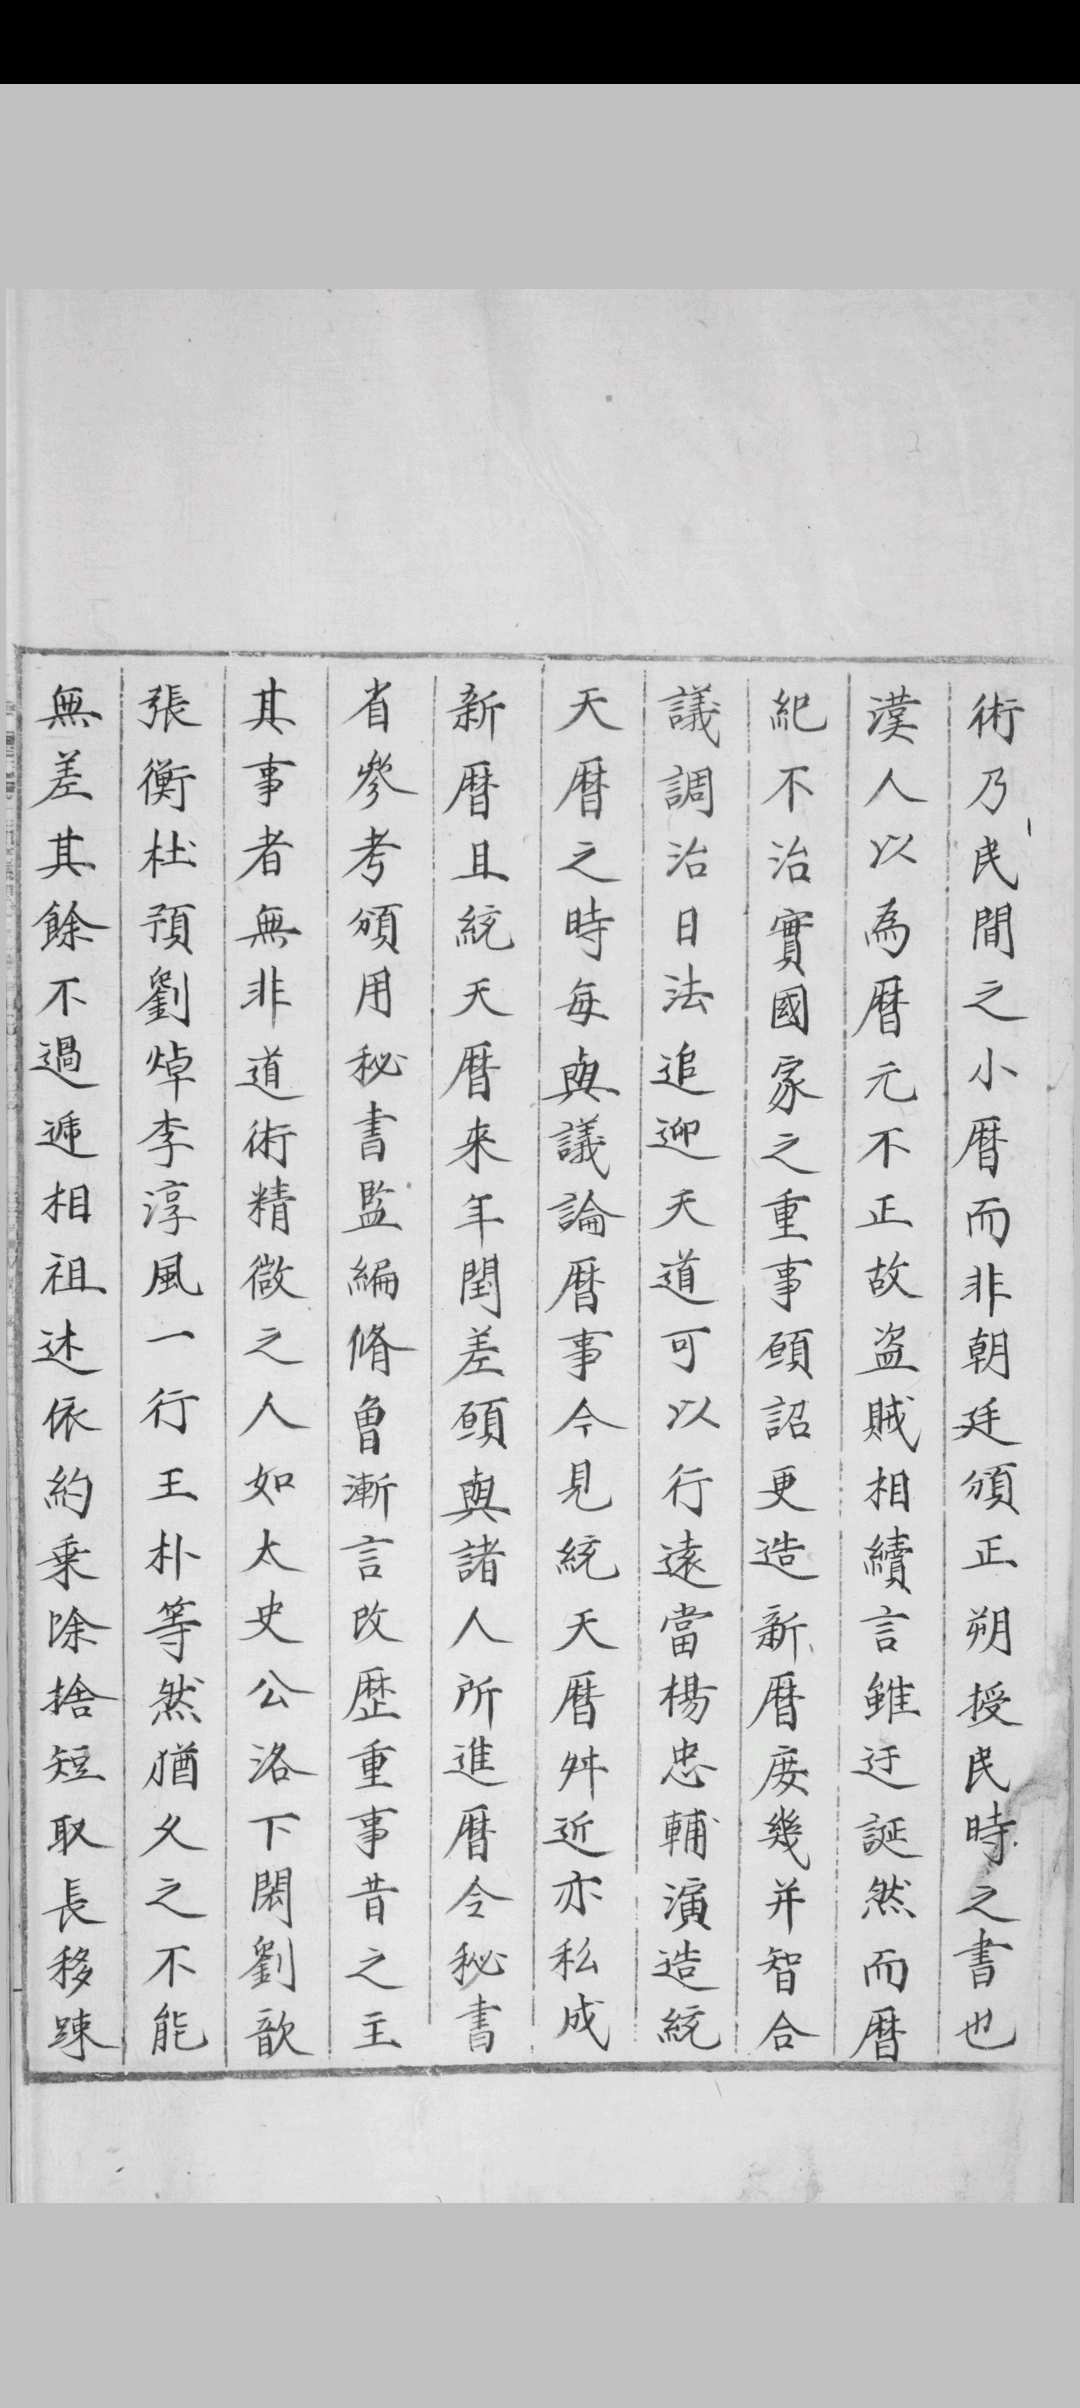 術乃民間之小曆而非朝廷頒正朔授民時之書也
漢人以為曆元不正故盗賊相續言雖迂誕然而曆
紀不治實國家之重事願詔更造新曆庻幾并智合
議調治日法追迎天道可以行遠當楊忠輔演造統
天曆之時每與議論曆事今見統天曆舛近亦私成
新曆且統天曆來年閏差願與諸人所進曆令秘書
省參考頒用秘書監編脩曾漸言改歷重事昔之主
其事者無非道術精微之人如太史公洛下閎劉歆
張衡杜預劉焯李淳風一行王朴等然猶久之不能
無差其餘不過遞相祖述依約乗除捨短取長移踈